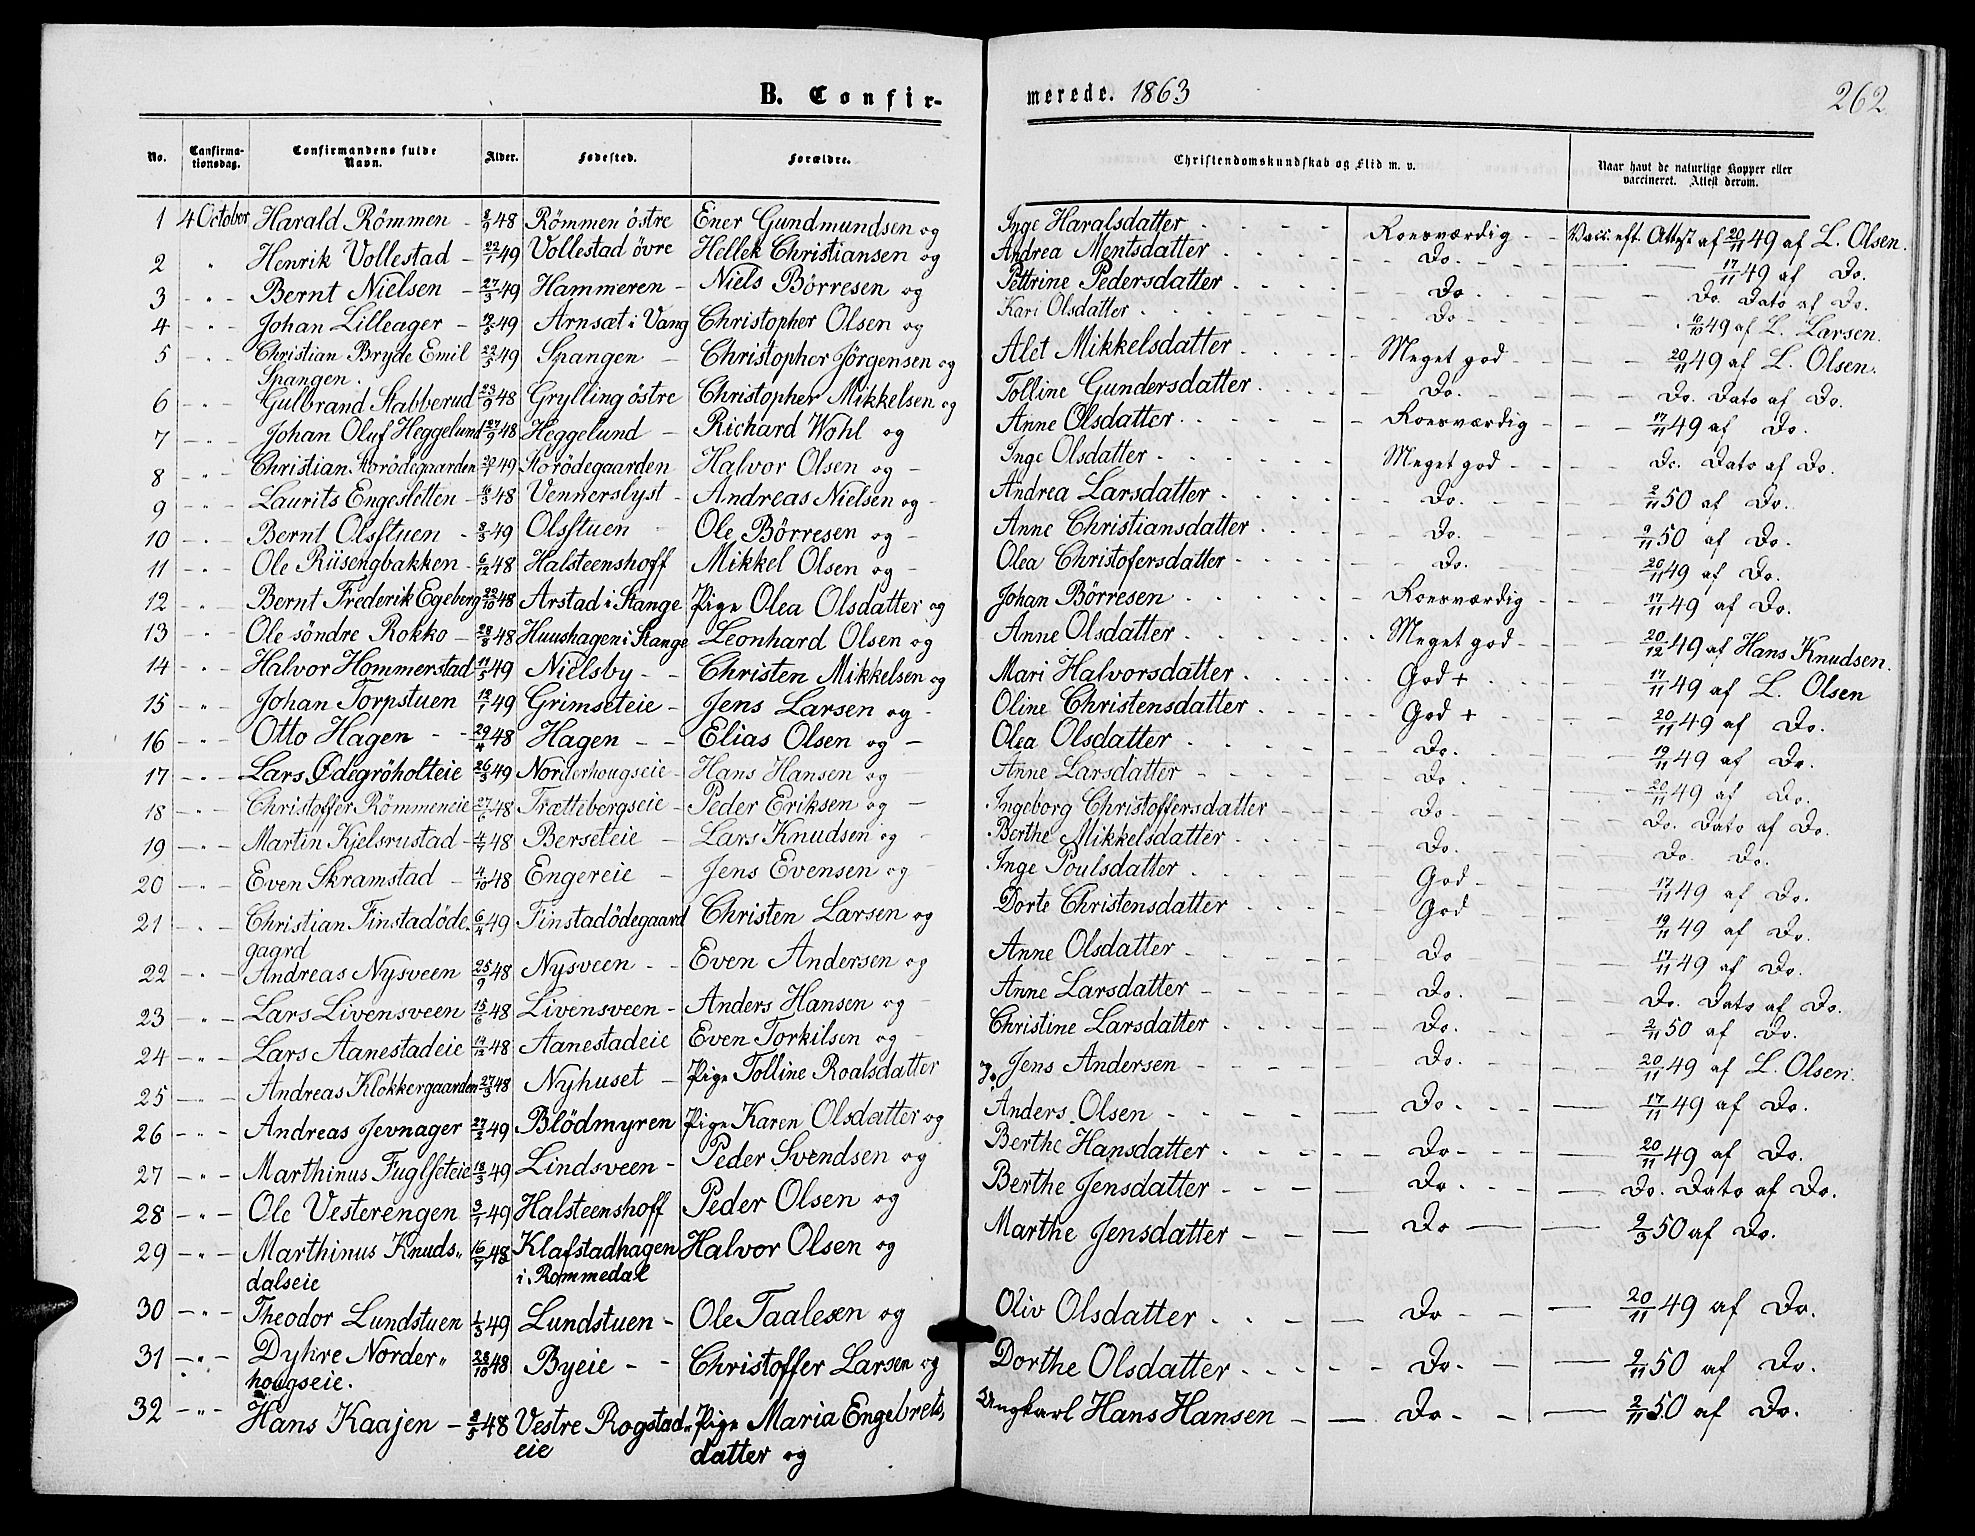 B. Confir-
merede. 1863
262
No. Confirma-tionsdag. Confirmandens fulde Navn. Alder. Fødested. Forældre. Christendomskundskab og Flid m. v. Naar havt de naturlige Kopper eller vaccineret. Attest derom.
1 4 October Harald Römmen - 8/9 48 Römmen östre Ener Gundmundsen og Inge Haralsdatter Roesværdig - Vacc. eft. Attest af 20/11 49 af L. Olsen.
2 " Henrik Vollestad - 22/1 49 Vollestad övre Hellek Christiansen og Andrea Mentsdatter Do. 17/11 49 af Do.
3 - " - Bernt Nielsen - 27/3 49 Hammeren - Niels Börresen og Pettrine Pedersdatter Do. Do. Dato af Do.
4 - " - Johan Lilleager - 19/5 49 Arnsæt i Vang Christopher Olsen og Kari Olsdatter Do. 10/10 49 af L. Larsen.
5 " - Christian Bryde Emil 22/3 49 Spangen - Christopher Jörgensen og Alet Mikkelsdatter Meget god - 20/11 49 af L. Olsen.
Spangen.
6 - " - Gulbrand Stabberud 23/9 48 Grylling östre Christopher Mikkelsen og Tolline Gundersdatter Do. Do. Dato af Do.
7 - " - Johan Oluf Heggelund 27/9 48 Heggelund - Richard Wohl og Anne Olsdatter Roesværdig - 17/11 49 af Do.
8 " Christian Storödegaarden 20/1 49 Storödegaarden Halvor Olsen og - Inge Olsdatter Meget god - Do. Dato af Do.
9 - " - Laurits Engesletten - 16/3 48 Vennerslyst - Andreas Nielsen og - Andrea Larsdatter Do. 2/11 50 af Do.
10 - " - Bernt Olsstuen - 8/3 49 Olsstuen Ole Börresen og - Anne Christiansdatter Do. 2/11 50 af Do.
11 - " - Ole Riisengbakken - 6/12 48 Halsteenshoff Mikkel Olsen og - Olea Christofersdatter Do. 20/11 49 af Do.
12 " Bernt Frederik Egeberg 22/10 48 Arstad i Stange Pige Olea Olsdatter og Johan Börresen Roesværdig - 17/11 49 af Do.
13 " Ole söndre Rokko - 28/8 48 Huushagen i Stange Leonhard Olsen og Anne Olsdatter Meget god - 20/12 49 af Hans Knudsen.
14 - " - Halvor Hommerstad 11/5 49 Nielsby - - Christen Mikkelsen og Mari Halvorsdatter God + 17/11 49 af L. Olsen
15 - " - Johan Torpstuen 12/1 49 Grimseteie - Jens Larsen og - Oline Christensdatter God + 20/11 49 af Do.
16 - " - Otto Hagen - - 29/4 48 Hagen - - Elias Olsen og - Olea Olsdatter Do. 19/11 49 af Do.
17 - " - Lars Ödegröholteie 26/3 49 Norderhougseie - Hans Hansen og Anne Larsdatter Do. 20/11 49 af Do.
18 - " - Christoffer Römmeneie 27/6 48 Trættebergseie - Peder Eriksen og - Ingeborg Christoffersdatter Do - Do. Dato af Do.
19 - " - Martin Kjelsrustad - 4/7 48 Berseteie - Lars Knudsen og - Berthe Mikkelsdatter Do. Do. Do.
20 - " - Even Skramstad - 4/10 48 Engereie - Jens Evensen og - Inge Poulsdatter God - 17/11 49 af Do.
21 - " - Christian Finstadöde- 6/4 49 Finstadödegaard Christen Larsen og Dorte Christensdatter God 19/11 49 af Do.
gaard
22 - " - Andreas Nysveen 25/9 48 Nysveen - - Even Andersen og Anne Olsdatter Do 17/11 49 af Do.
23 - " - Lars Livensveen 15/6 48 Livensveen - Anders Hansen og - Anne Larsdatter Do. Do. Dato af Do.
24 - " - Lars Aanestadeie 14/12 48 Aanestadeie Even Torkilsen og - Christine Larsdatter Do. 2/11 50 af Do.
25 - " - Andreas Klokkergaarden 27/3 48 Nyhuset - Pige Tolline Roalsdatter Jens Andersen Do. 20/11 49 af L. Olsen.
26 - " - Andreas Jevnager 27/2 49 Blödmyren Pige Karen Olsdatter og Anders Olsen Do. 17/11 49 af Do.
27 - " - Marthinus Fuglseteie 18/3 49 Lindsveen - Peder Svendsen og Berthe Hansdatter Do. 20/11 49 af Do.
28 - " - Ole Vesterengen 3/1 49 Halsteenshoff Peder Olsen og Berthe Jensdatter Do. Do. Dato af Do.
29 - " - Marthinus Knuds" 16/9 48 Klafstadhagen Halvor Olsen og Marthe Jensdatter Do 2/3 50 af Do.
dalseie i. Rommedal
30 - " - Theodor Lundstuen 1/3 49 Lundstuen - Ole Taalesen og Oliv Olsdatter Do 20/11 49 af Do.
31 - " - Dyhre Norder" 28/10 48 Byeie - - Christoffer Larsen og Dorthe Olsdatter Do. 2/11 50 af Do.
hougseie.
32 - " - Hans Kaajen - 2/5 48 Vestre Rogstad" Pige Maria Engebrets, Ungkarl Hans Hansen Do. 2/11 50 af Do.
eie datter og